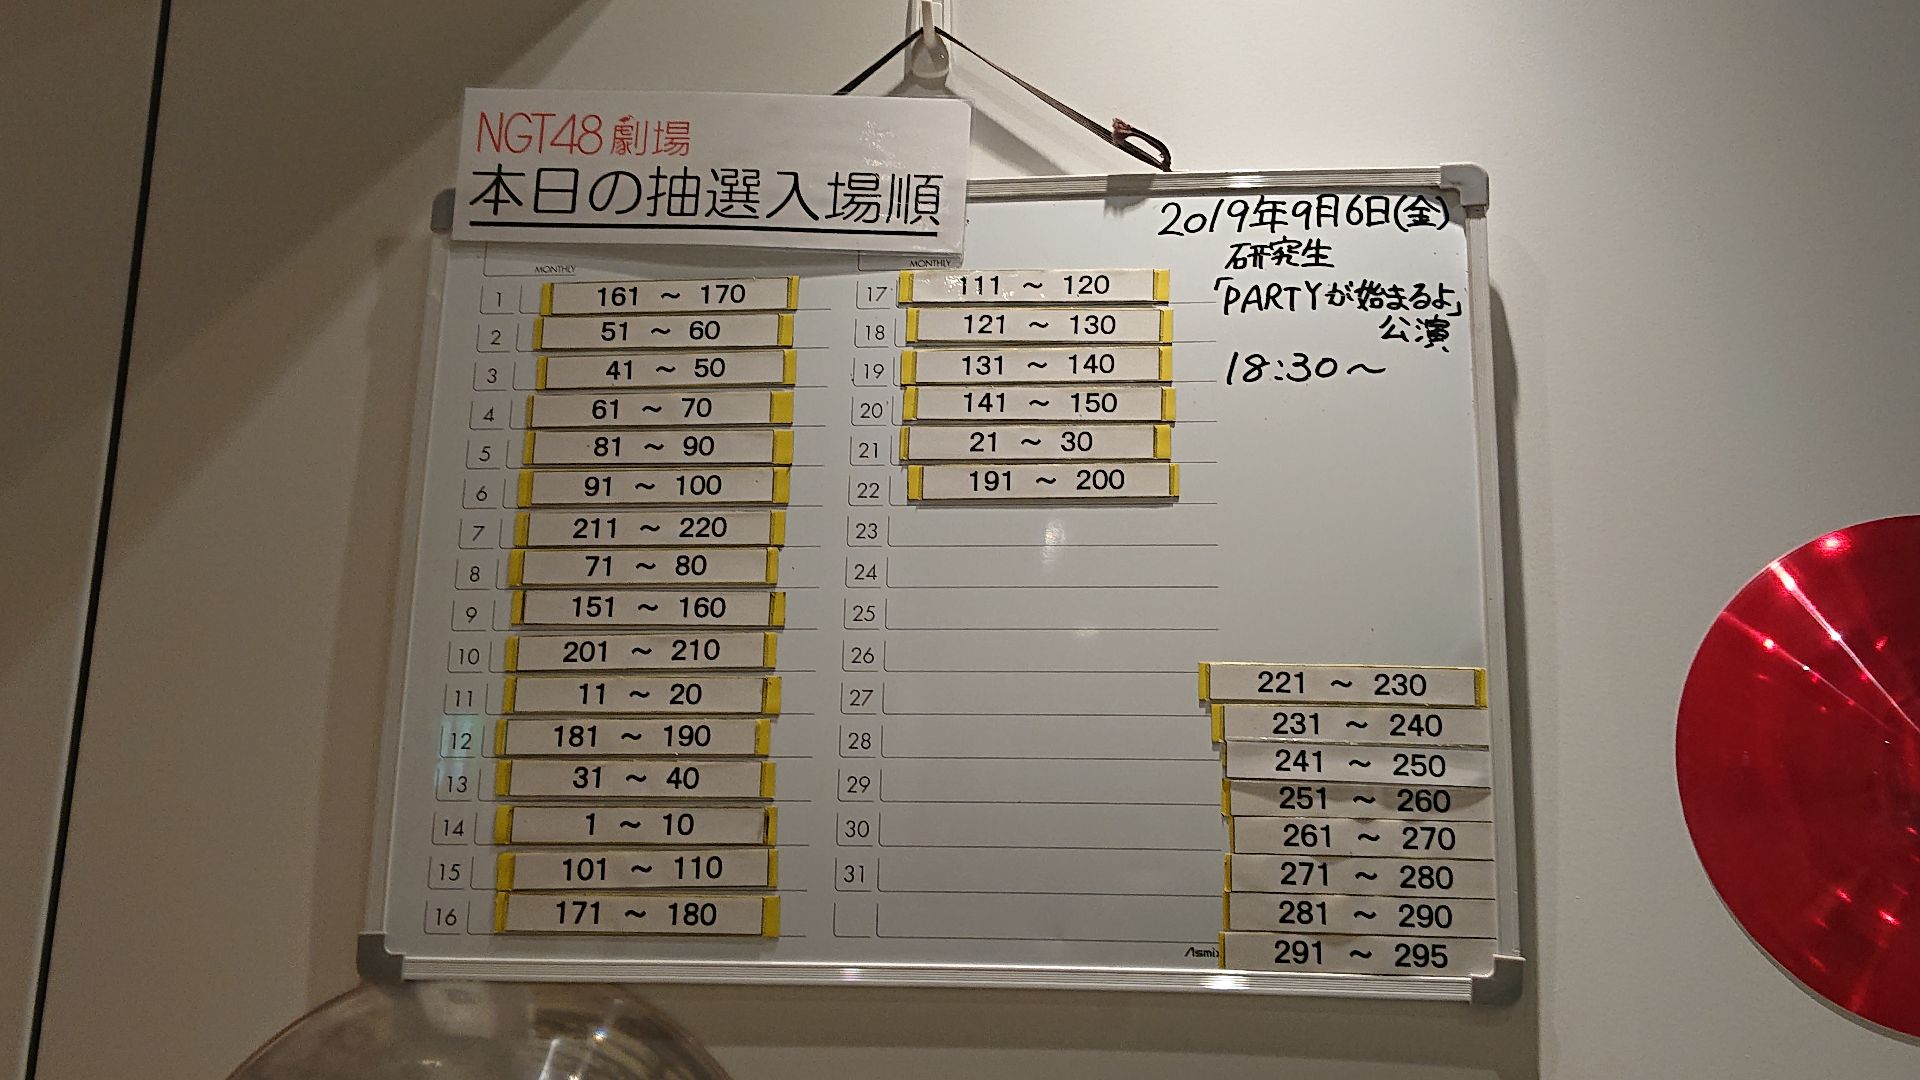 NGT48劇場
本日の抽選入場順
2019年9月6日(金)
研究生
「PARTYが始まるよ」
公演
18:30～
MONTHLY
1 161 ～ 170
2 51 ～ 60
3 41 ～ 50
4 61 ～ 70
5 81 ～ 90
6 91 ～ 100
7 211 ～ 220
8 71 ～ 80
9 151 ～ 160
10 201 ～ 210
11 11 ～ 20
12 181 ～ 190
13 31 ～ 40
14 1 ～ 10
15 101 ～ 110
16 171 ～ 180
MONTHLY
17 111 ～ 120
18 121 ～ 130
19 131 ～ 140
20 141 ～ 150
21 21 ～ 30
22 191 ～ 200
23
24
25
26
27
28
29
30
31
221 ～ 230
231 ～ 240
241 ～ 250
251 ～ 260
261 ～ 270
271 ～ 280
281 ～ 290
291 ～ 295
Asmix